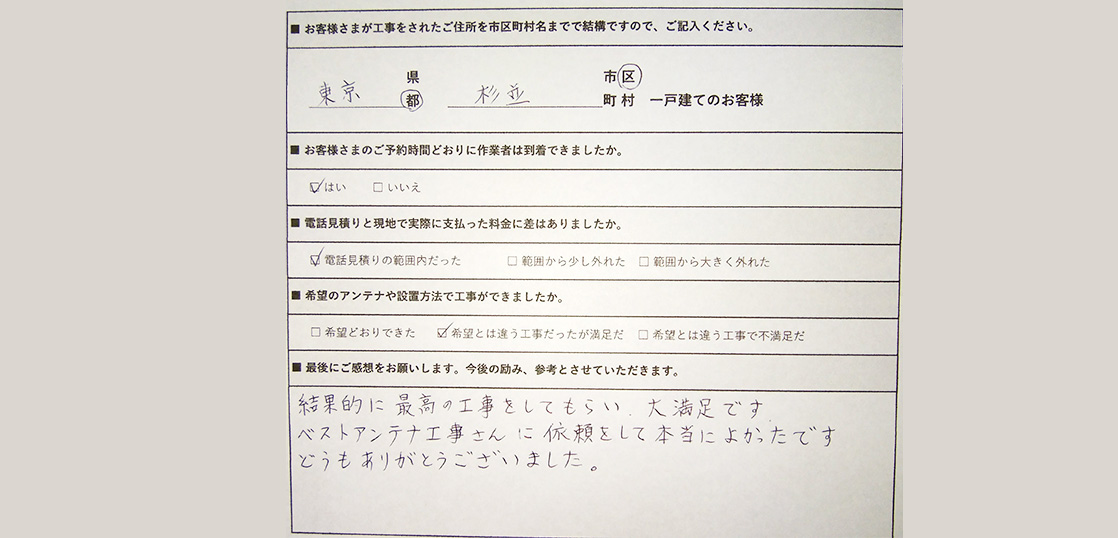 ■ お客様さまが工事をされたご住所を市区町村名までで結構ですので、ご記入ください。
東京 県 都 杉並 市 区 町 村 一戸建てのお客様
■ お客様さまのご予約時間どおりに作業者は到着できましたか。
☑ はい □ いいえ
■ 電話見積りと現地で実際に支払った料金に差はありましたか。
☑ 電話見積りの範囲内だった □ 範囲から少し外れた □ 範囲から大きく外れた
■ 希望のアンテナや設置方法で工事ができましたか。
□ 希望どおりできた ☑ 希望とは違う工事だったが満足だ □ 希望とは違う工事で不満足だ
■ 最後にご感想をお願いします。今後の励み、参考とさせていただきます。
結果的に最高の工事をしてもらい、大満足です.
ベストアンテナ工事さんに依頼をして本当によかったです
どうもありがとうございました。